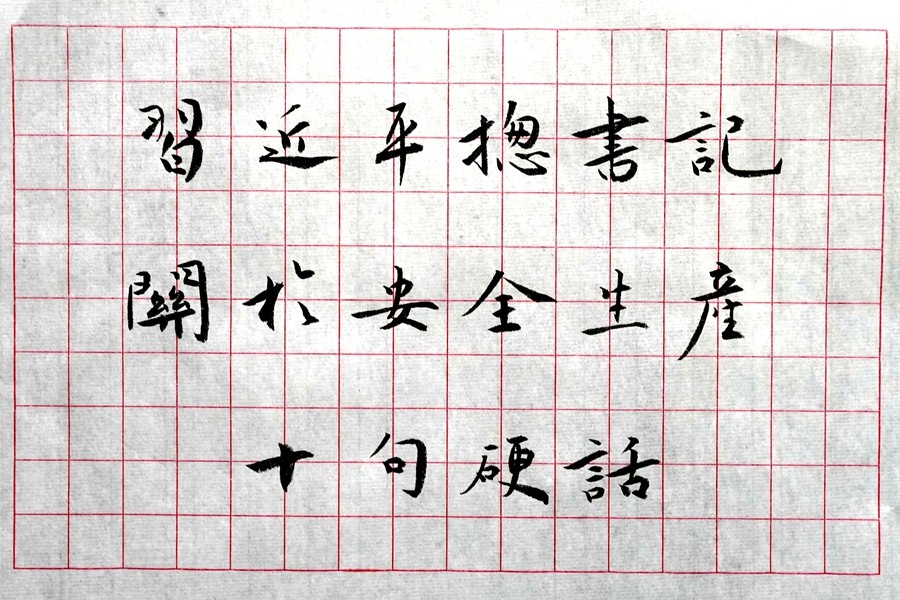 習近平摠書記
關於安全生産
十句硬話